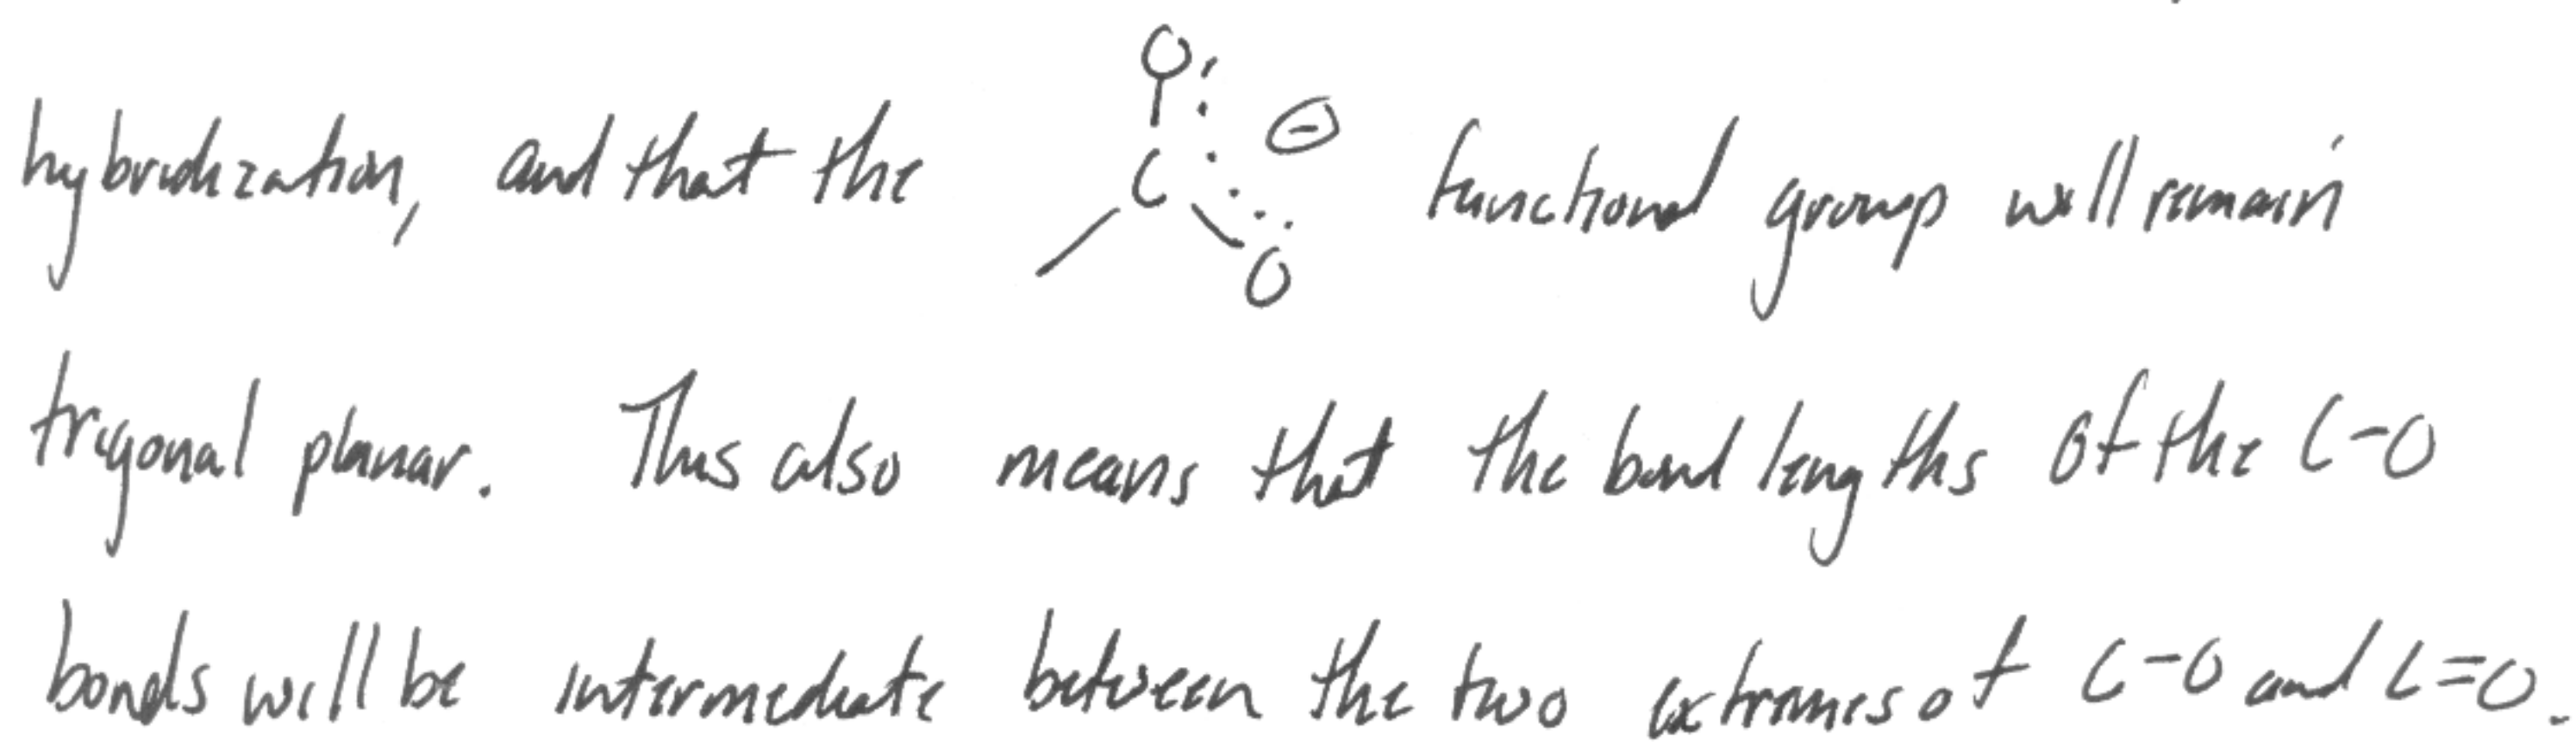 hybridization, and that the O C O ⊖ functional group will remain
trigonal planar. This also means that the bond lengths of the C-O
bonds will be intermediate between the two extremes of C-O and C=O.